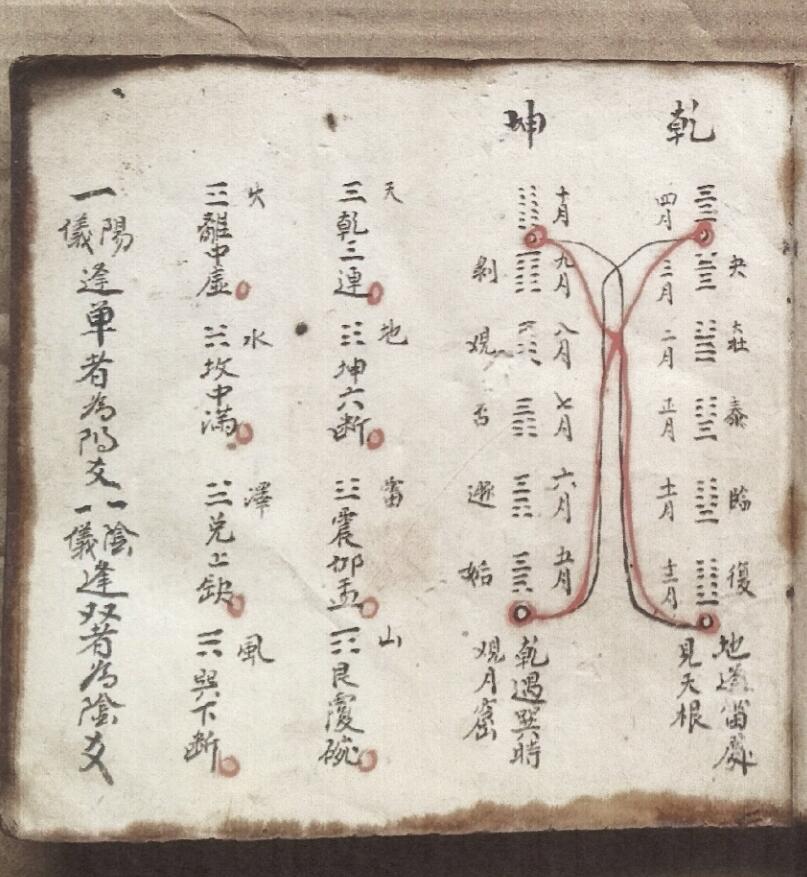 乾
夬
大壯
泰
臨
復
地逢雷處
見天根
四月
三月
二月
正月
坤
十月
九月
八月
七月
六月
五月
剥
观
否
遯
姤
乾遇巽時
观月窟
天
乾三連
地
坤六断
雷
震仰盂
山
艮覆碗
火
離中虛
水
坎中满
澤
兑上缺
風
巽下断
一陽儀逢单者為陽爻
一陰儀逢双者為陰爻